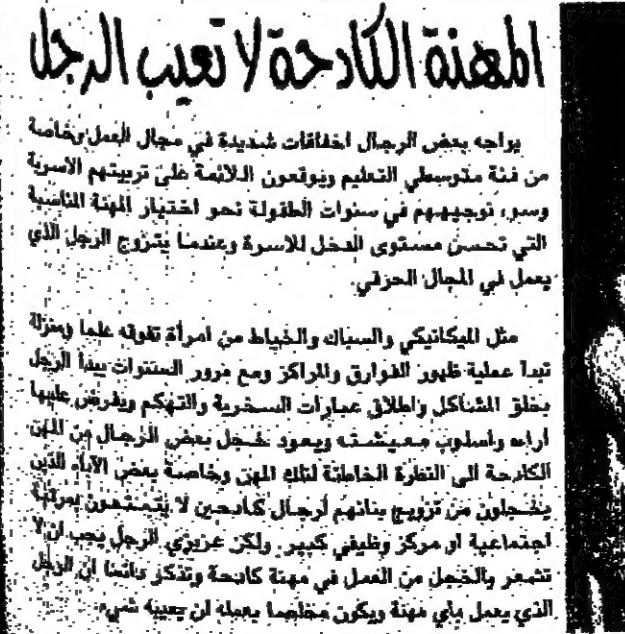 المهنة الكادحة لا تعيب الرجل
يواجه بعض الرجال اخفاقات شديدة في مجال العمل وخاصة
من فئة متوسطي التعليم ويوقعون اللائمة على تربيتهم الاسرية
وسوء توجيههم في سنوات الطفولة نحو اختيار المهنة المناسبة
التي تحسن مستوى الدخل للاسرة وعندما يتزوج الرجل الذي
يعمل في المجال الحرفي.
مثل الميكانيكي والسباك والخياط من امرأة تفوقه علما ومنزلة
تبدأ عملية ظهور الفوارق والمراكز ومع مرور السنوات يبدأ الرجل
بخلق المشاكل واطلاق عبارات السخرية والتهكم ويفرض عليها
اراءه واسلوب معيشته ويعود خجل بعض الرجال من المهن
الكادحة الى النظرة الخاطئة لتلك المهن وخاصة بعض الآباء الذين
يخجلون من تزويج بناتهم لرجال كادحين لا يتمتعون بمرتبة
اجتماعية او مركز وظيفي كبير. ولكن عزيزي الرجل يجب ان لا
تشعر بالخجل من العمل في مهنة كادحة وتذكر دائما ان الرجل
الذي يعمل بأي مهنة ويكون مخلصا بعمله لن يعيبه شيء.